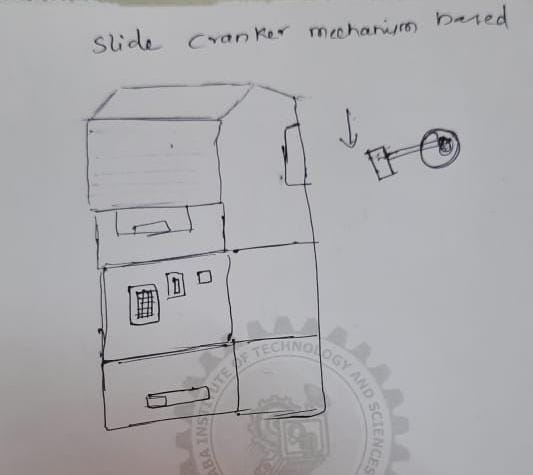 slide cranker mechanism based
BA INSTITUTE OF TECHNOLOGY AND SCIENCES